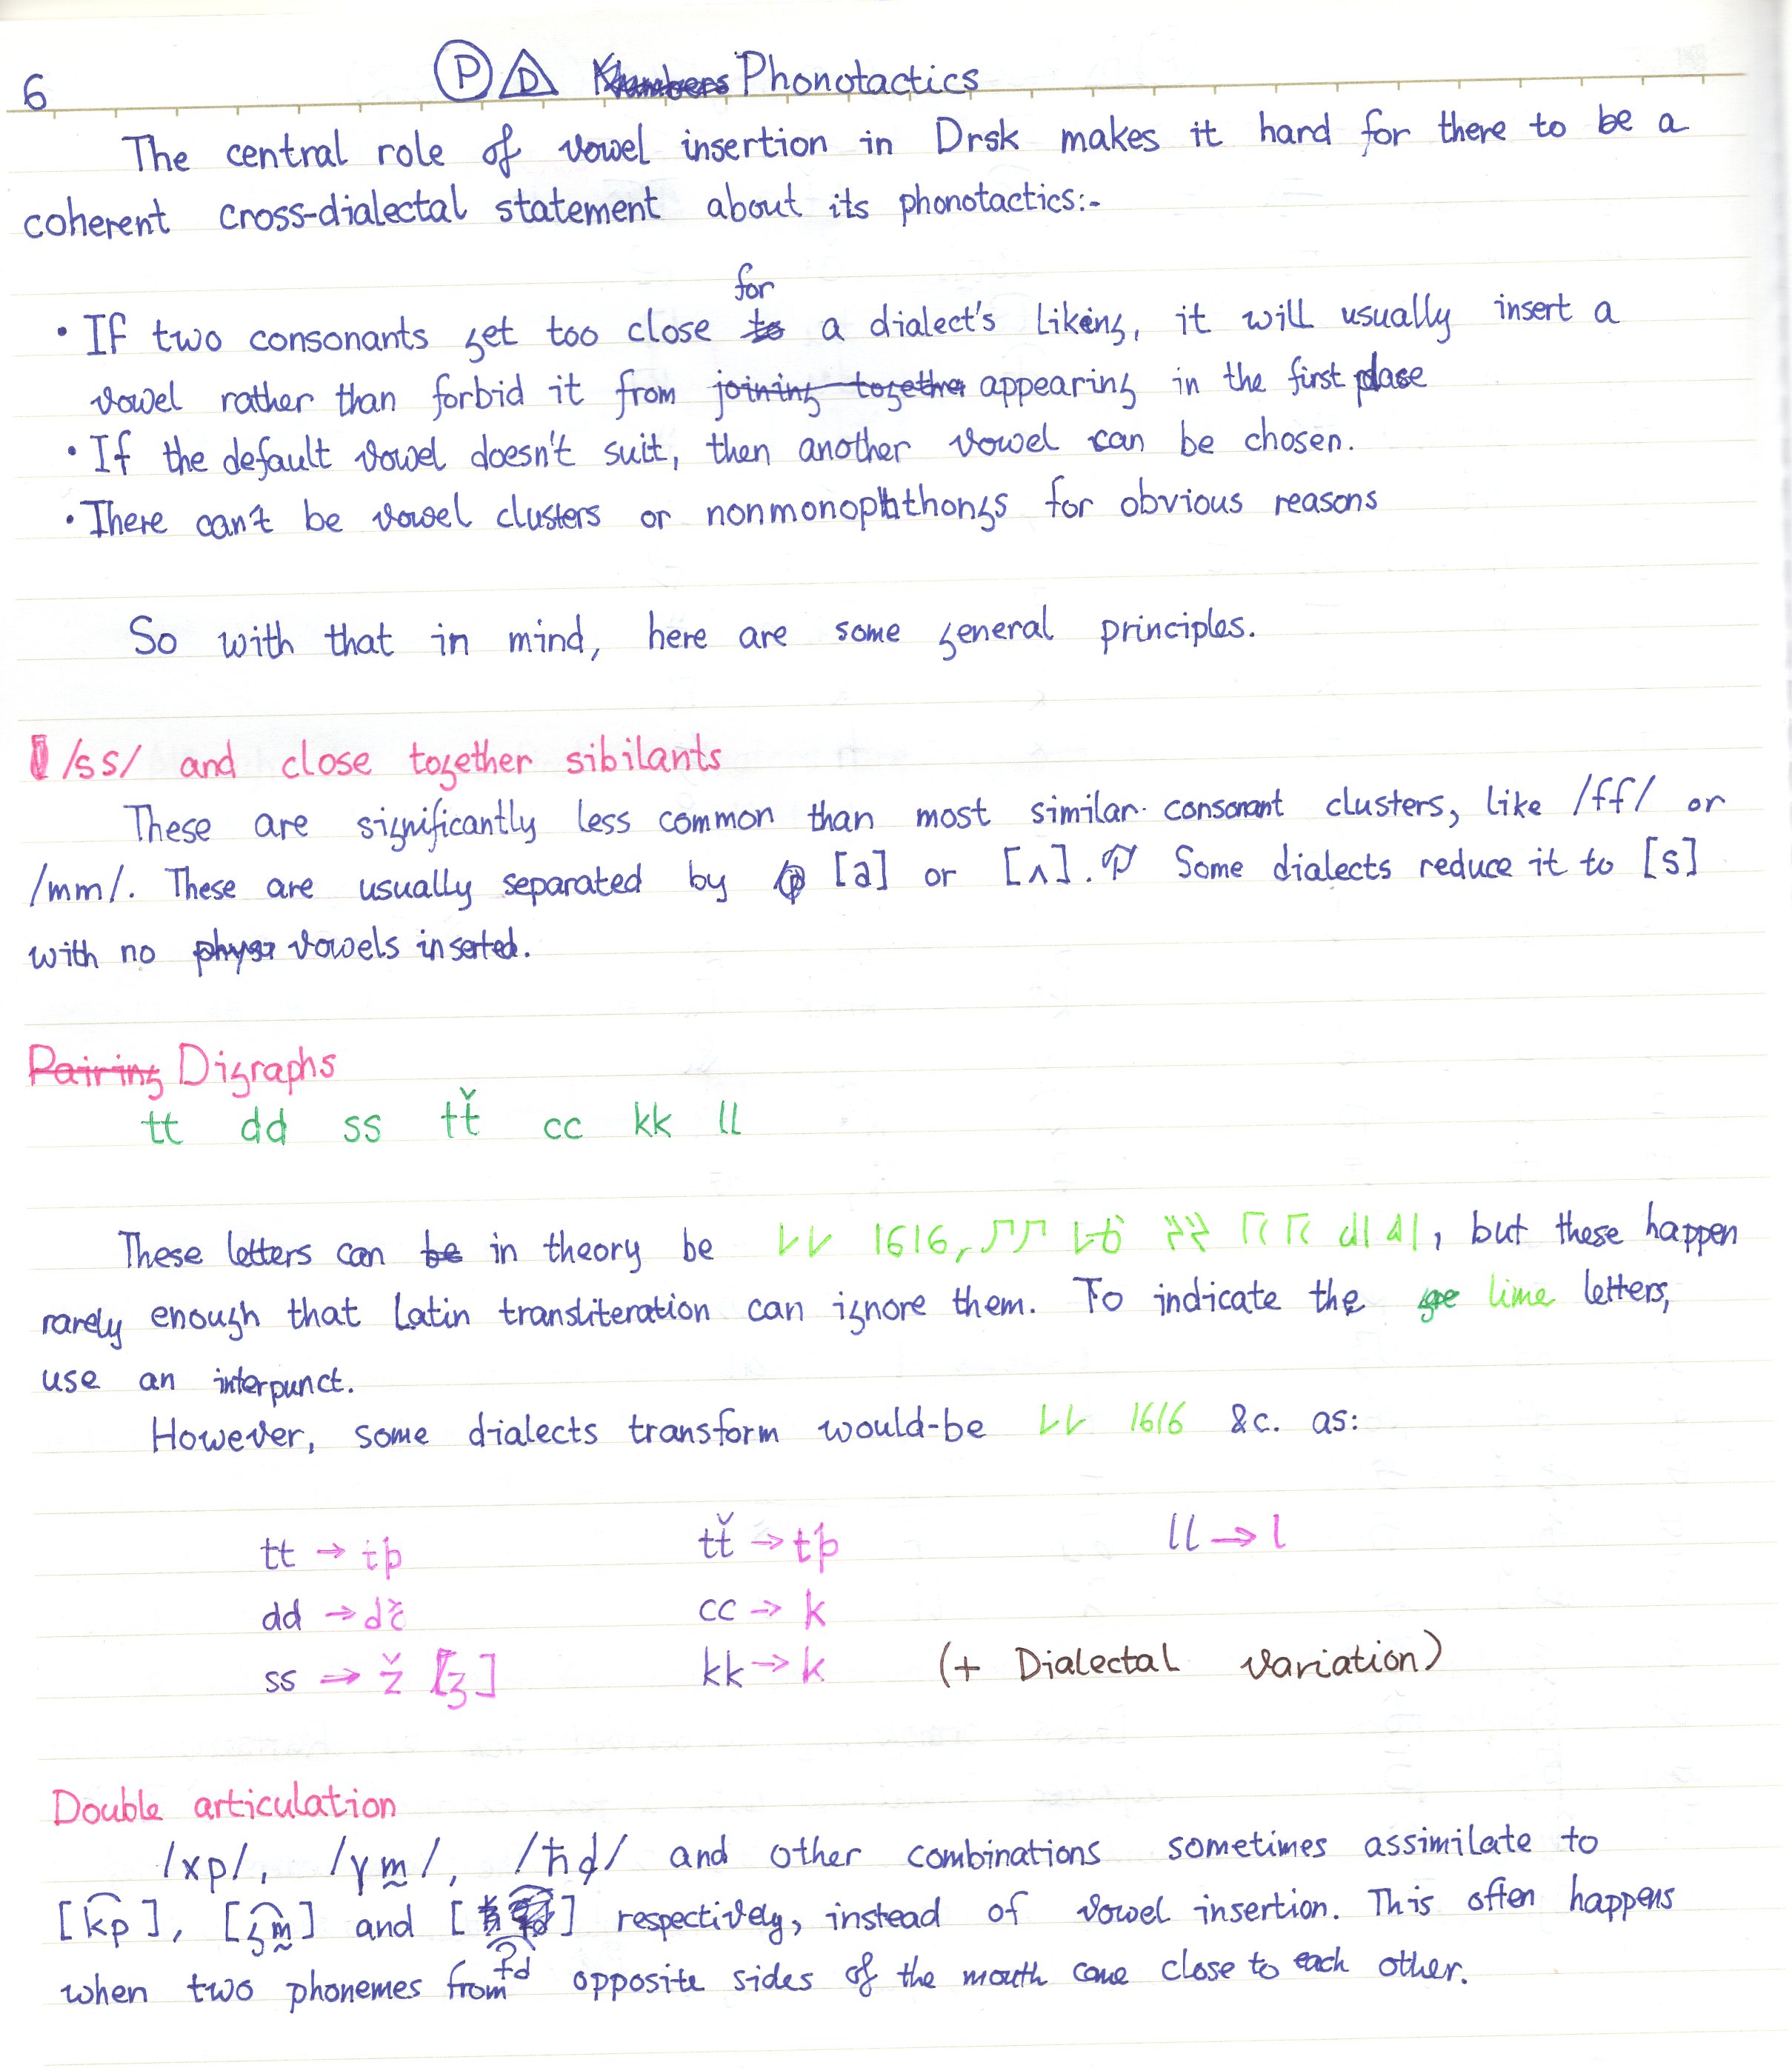 6 Ⓟ D Numbers Phonotactics
The central role of vowel insertion in Drsk makes it hard for there to be a
coherent cross-dialectal statement about its phonotactics:-
for
• If two consonants get too close to a dialect's liking, it will usually insert a
vowel rather than forbid it from joining together appearing in the first place
• If the default vowel doesn't suit, then another vowel can be chosen.
• There can't be vowel clusters or nonmonophthongs for obvious reasons
So with that in mind, here are some general principles.
/ss/ and close together sibilants
These are significantly less common than most similar consonant clusters, like /ff/ or
/mm/. These are usually separated by [a] or [ʌ]. Some dialects reduce it to [s]
with no vowels inserted.
Pairing Digraphs
tt dd ss tť cc kk ll
These letters can be in theory be , but these happen
rarely enough that Latin transliteration can ignore them. To indicate the gre lime letters,
use an interpunct.
However, some dialects transform would-be &c. as:
tt → tþ tť → tþ ll → l
dd → dč cc → k
ss → ž [ʒ] kk → k (+ Dialectal variation)
Double articulation
/xp/, /ɣm̰/, /ħd/ and other combinations sometimes assimilate to
[k͡p], and respectively, instead of vowel insertion. This often happens
when two phonemes from opposite sides of the mouth come close to each other.